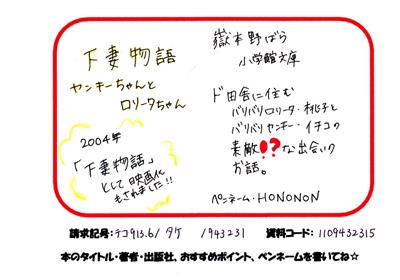 下妻物語
ヤンキーちゃんと
ロリータちゃん
2004年
「下妻物語」
として映画化
もされました!!
嶽本野ばら
小学館文庫
ド田舎に住む
バリバリロリータ・桃子と
バリバリヤンキー・イチゴの
素敵!?な出会いの
お話。
ペンネーム・HONONON
請求記号:チコ913.6/ タケ /943231 資料コード: 1109432315
本のタイトル・著者・出版社、おすすめポイント、ペンネームを書いてね☆